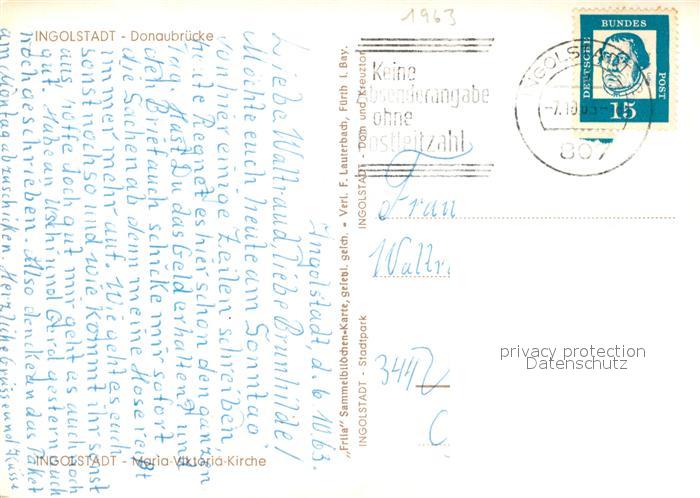 1963
INGOLSTADT - Donaubrücke
INGOLSTADT - Maria-Viktoria-Kirche
"Frila" Sammelbildchen-Karte, gefehl. gesch. - Verl. F. Lauterbach, Fürth i. Bay.
INGOLSTADT - Dom und Kreuztor
INGOLSTADT - Stadtpark
Keine
bsenderangabe
ohne
ostleitzahl
INGOLSTA
-7.10.63-
807
DEUTSCHE
BUNDES
POST
15
Ingolstadt, d. 6.10.63.
Liebe Waltraud, liebe Brunhilde!
Möchte euch heute am Sonntag
vorher einige Zeilen schreiben.
Heute Regnet es hier schon den ganzen
Tag. Hast Du das Geld erhalten und
den Brief auch schicke mir sofort
die Sachen ab denn meine Hose reibt
immer mehr auf. Wie geht es euch
sonst noch so und wie kommt ihr sonst
aus hoffe doch gut mir geht es auch noch
gut. Habe an Uschi und Gerd gestern auch
noch geschrieben. Also denckedn das Paket
am Montag abzuschicken. Herzliche Grüsse und Küsse
Frau
Waltr
344
privacy protection
Datenschutz